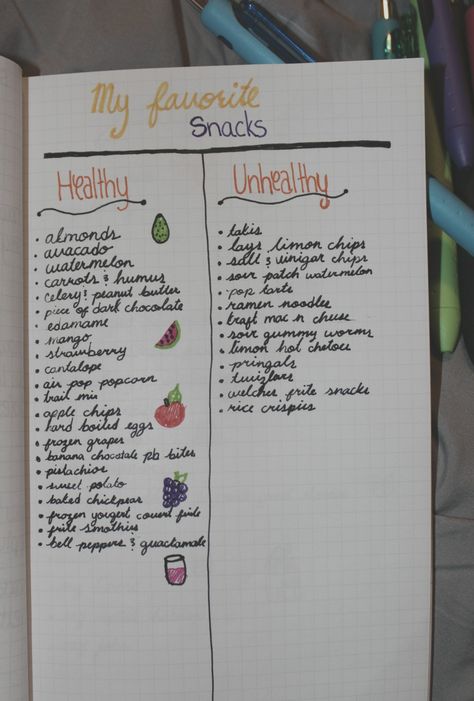 My favorite
Snacks
Healthy
• almonds
• avacado
• watermelon
• carrots & humus
• celery & peanut butter
• piece of dark chocolate
• edamame
• mango
• strawberry
• cantalope
• air pop popcorn
• trail mix
• apple chips
• hard boiled eggs
• frozen grapes
• banana chocolate pb bites
• pistachios
• sweet potato
• baked chickpeas
• frozen yougert frite
• frite smothies
• bell peppers & guactamale
Unhealthy
• takis
• lays limon chips
• salt & vinigar chips
• sour patch watermelon
• pop tarts
• ramen noodles
• kraft mac n cheese
• sour gummy worms
• limon hot chetoes
• pringals
• twizlars
• welches frite snacks
• rice crispies